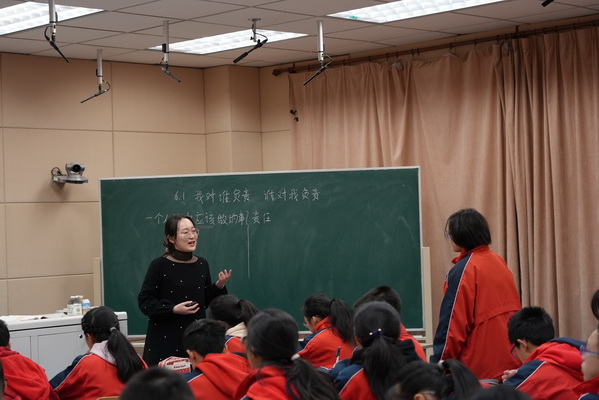 6.1 我对谁负责 谁对我负责
一个人 应该做的事 责任